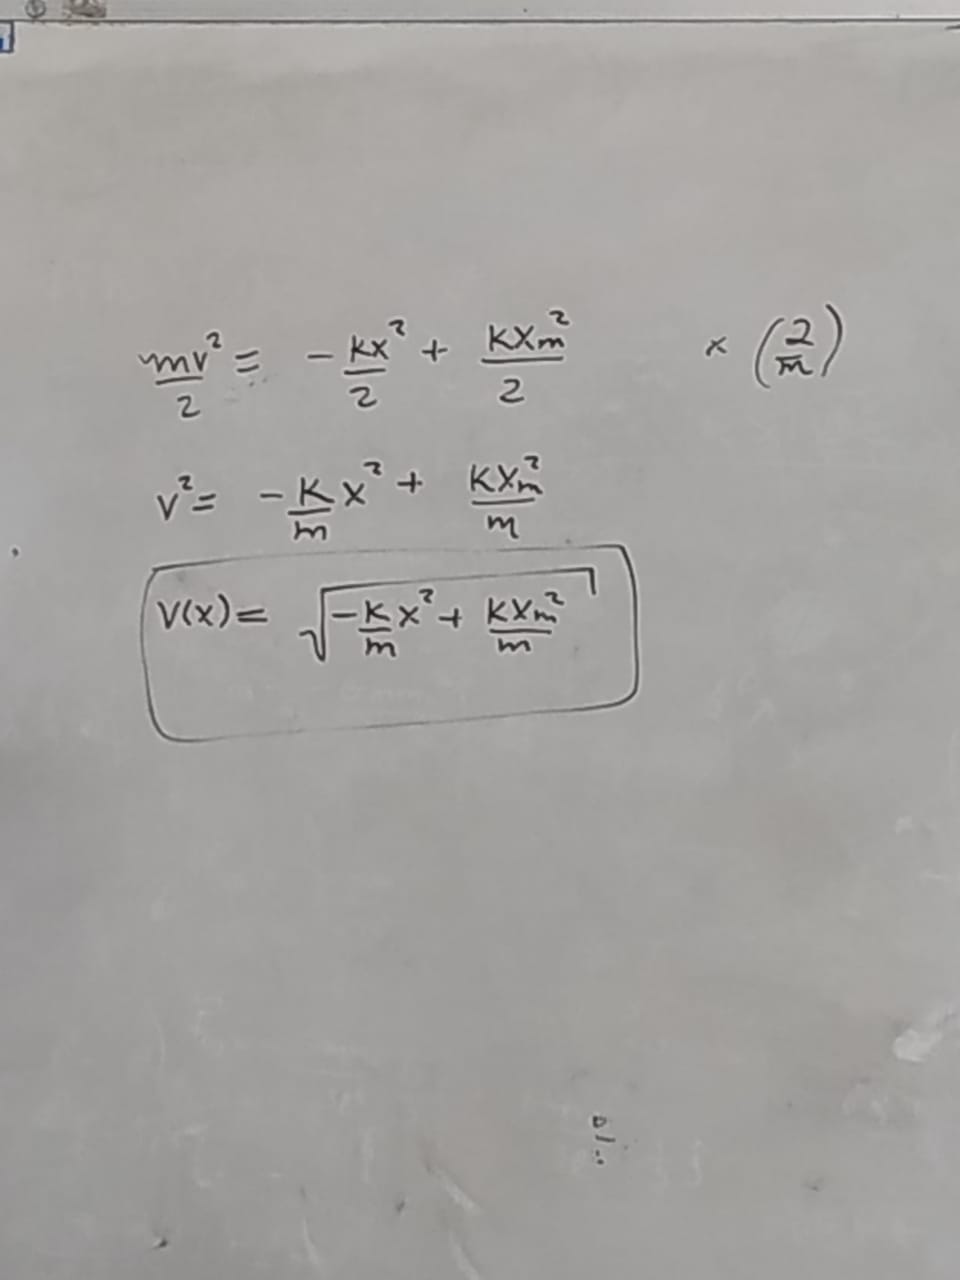 mv²/2 = - kx²/2 + kxm²/2 × (2/m)
v² = - k/m x² + kxm²/m
v(x) = √(-k/m x² + kxm²/m)